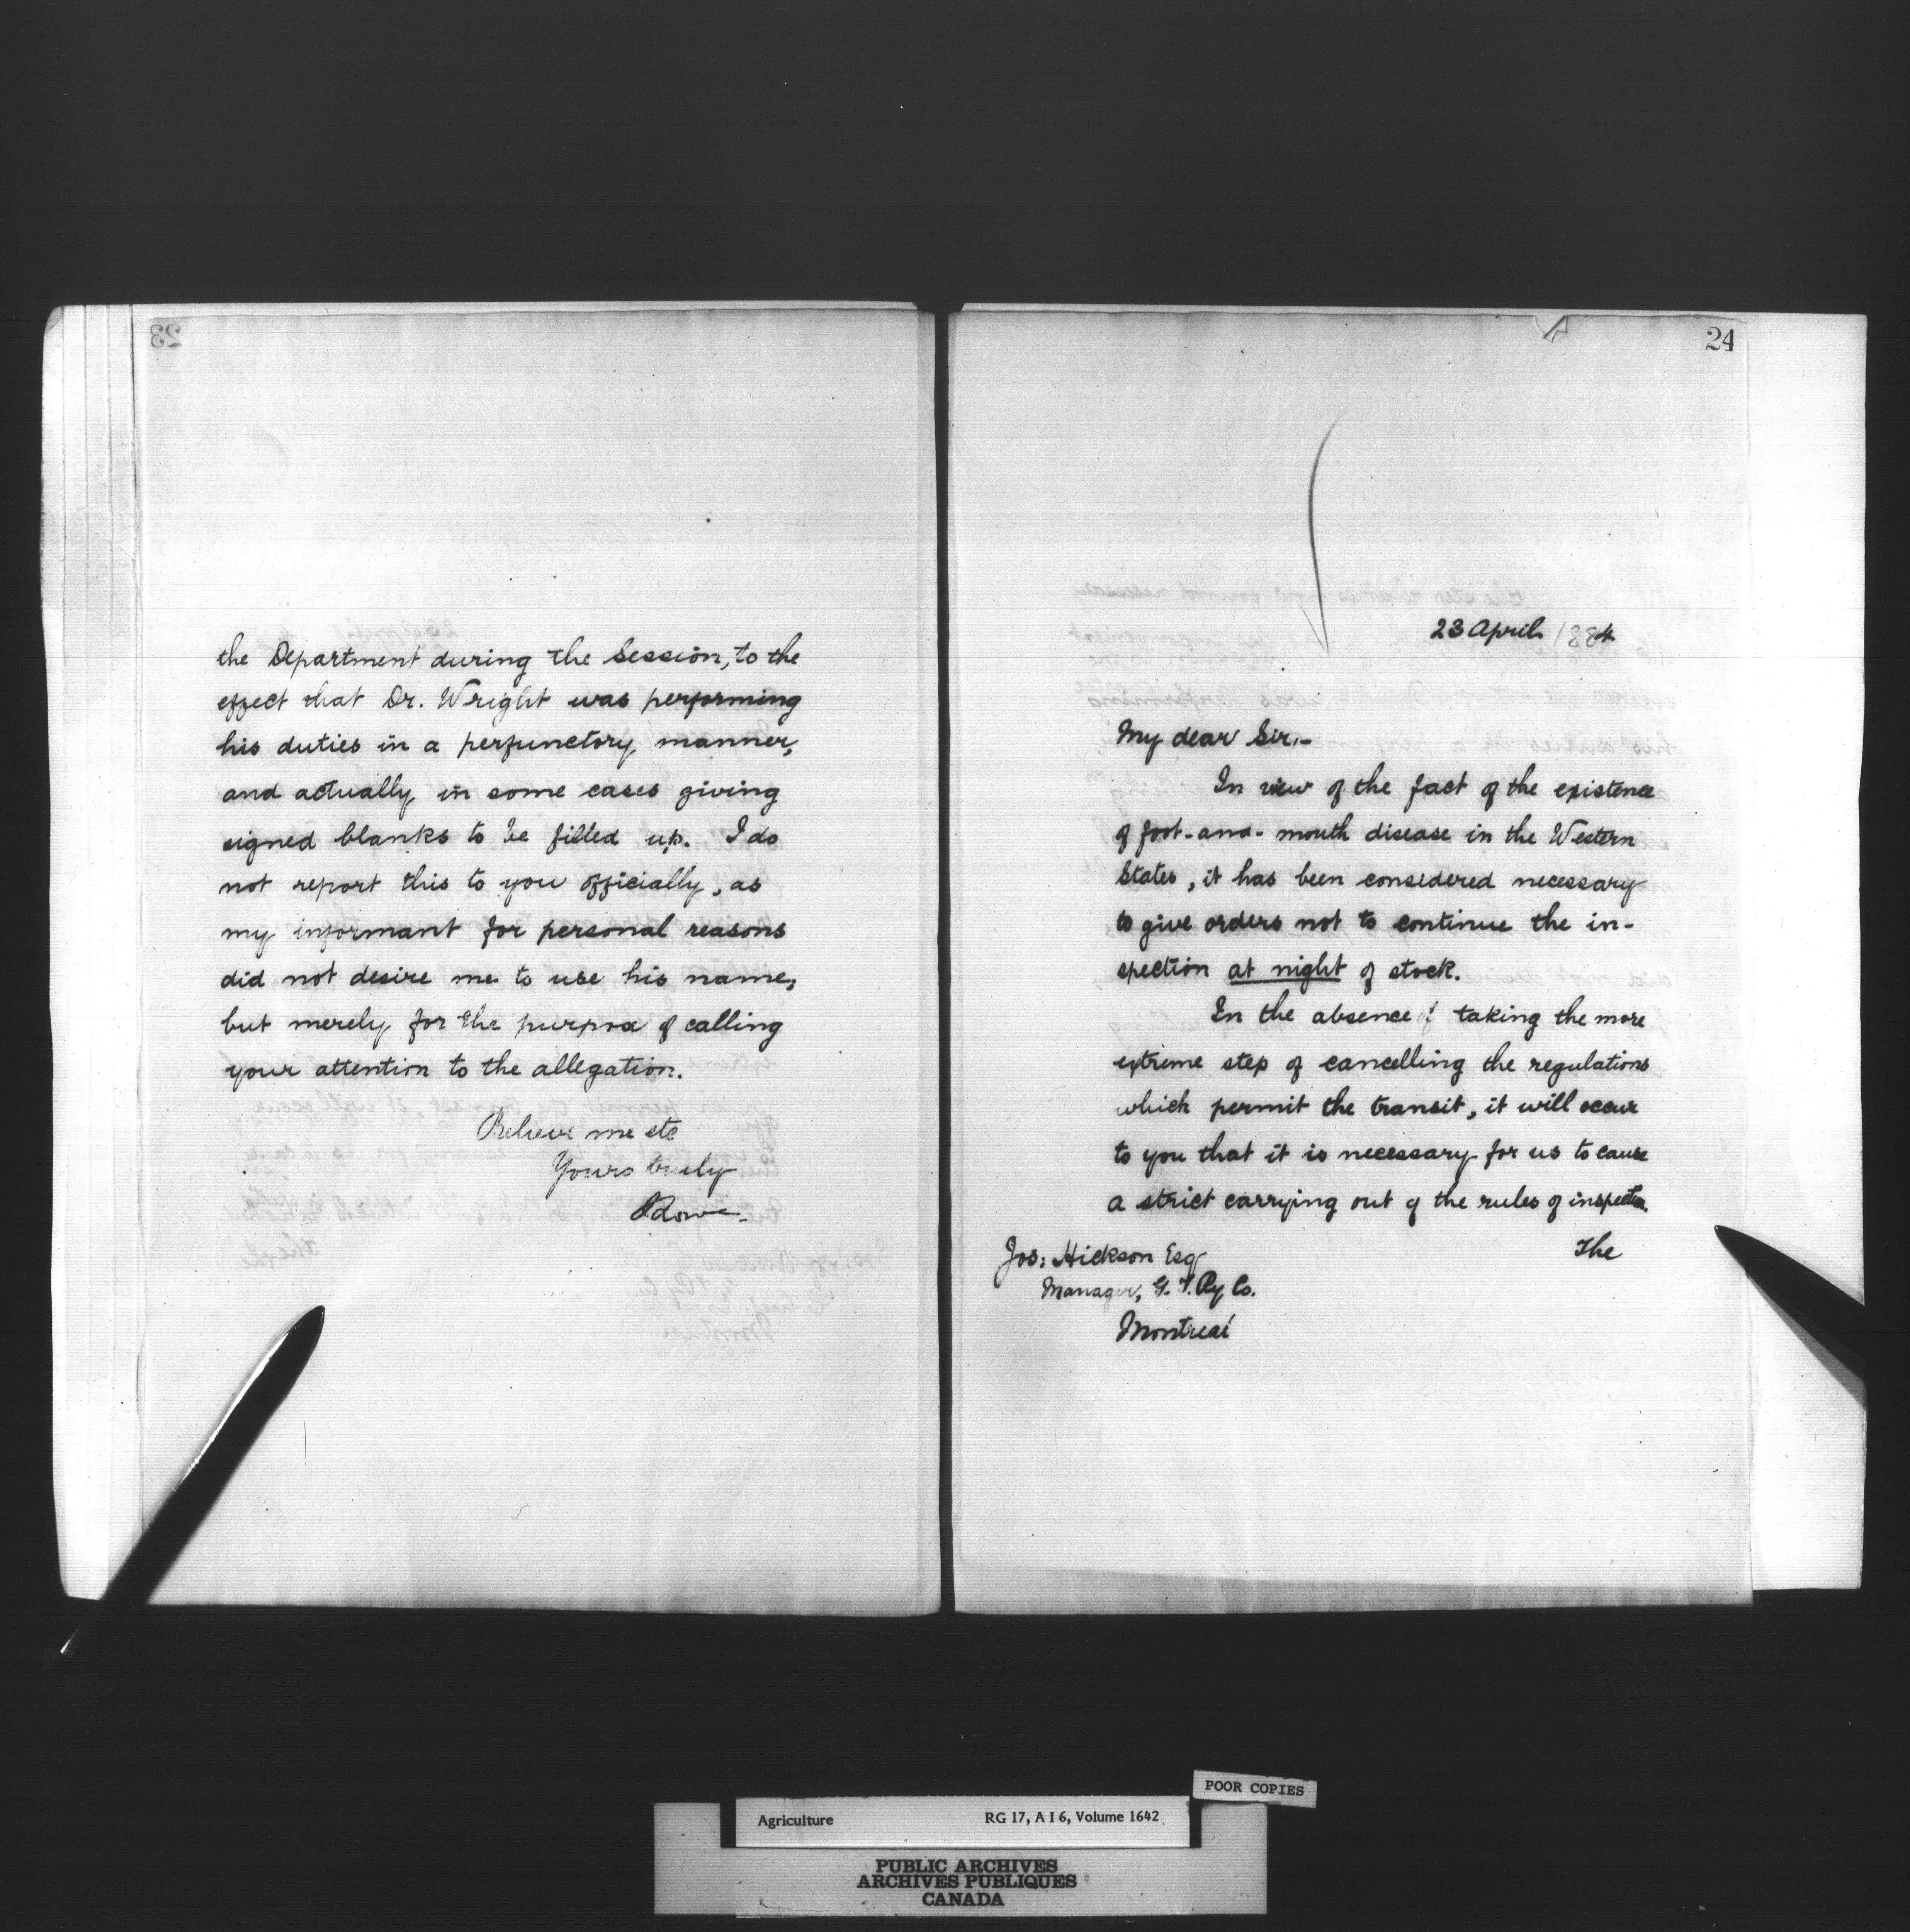 23
the Department during the Session, to the
effect that Dr. Wright was performing
his duties in a perfunctory manner,
and actually in some cases giving
signed blanks to be filled up. I do
not report this to you officially, as
my informant for personal reasons
did not desire me to use his name,
but merely for the purpose of calling
your attention to the allegation.
Believe me etc
Yours truly
JLowe.
24
23 April 1884
My dear Sir,-
In view of the fact of the existence
of foot-and-mouth disease in the Western
States, it has been considered necessary
to give orders not to continue the in-
spection at night of stock.
In the absence of taking the more
extreme step of cancelling the regulations
which permit the transit, it will occur
to you that it is necessary for us to cause
a strict carrying out of the rules of inspection.
The
Jos: Hickson Esq
Manager, G. T. Ry Co.
Montreal
POOR COPIES
Agriculture RG 17, A I 6, Volume 1642
PUBLIC ARCHIVES
ARCHIVES PUBLIQUES
CANADA